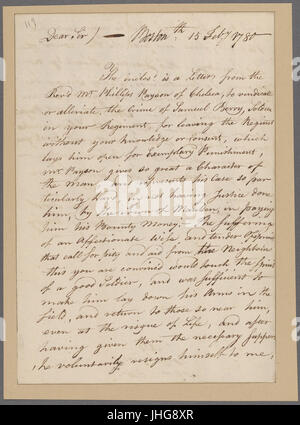 119
Dear Sir / — Boston 15 Feby 1780
The inclos.d is a Letter from the
Revd Mr Phillips Payson of Chelsea, to vindicate
or alleviate, the Crime of Samuel Berry, Soldier
in your Regiment, for leaving the Regimt
without your knowledge or consent, which
lays him open for Exemplary Punishment,
Mr Payson gives so great a Character of
the Man and represents his Case so par
ticularly hard, by not having Justice done
him, by the Town of Malden, in paying
him his Bounty Money; The sufferings
of an Affectionate Wife, and tender Offspring
that call for pity and aid from their Neighbours
this you are convinced would touch the
of a good Soldier, and was sufficient to
make him lay down his Arms in the
field, and return to those so near him,
even at the risque of Life, and after
having given them the necessary support,
he voluntarily resigns himself to me,
alamy stock photo
HG8XR